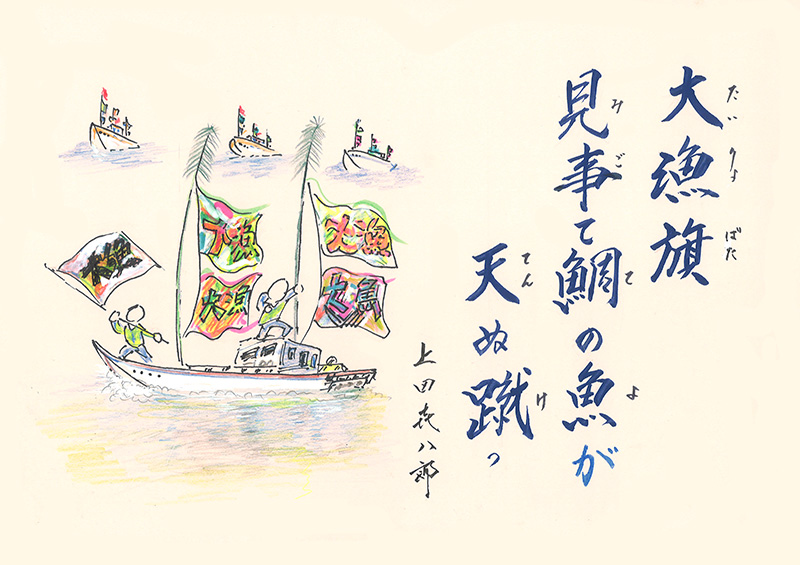 大漁旗
たいりょばた
見事て鯛の魚が
みごてよ
天ぬ蹴っ
てんけ
上田㐂八郎
大漁
大漁
大漁
大漁
大漁